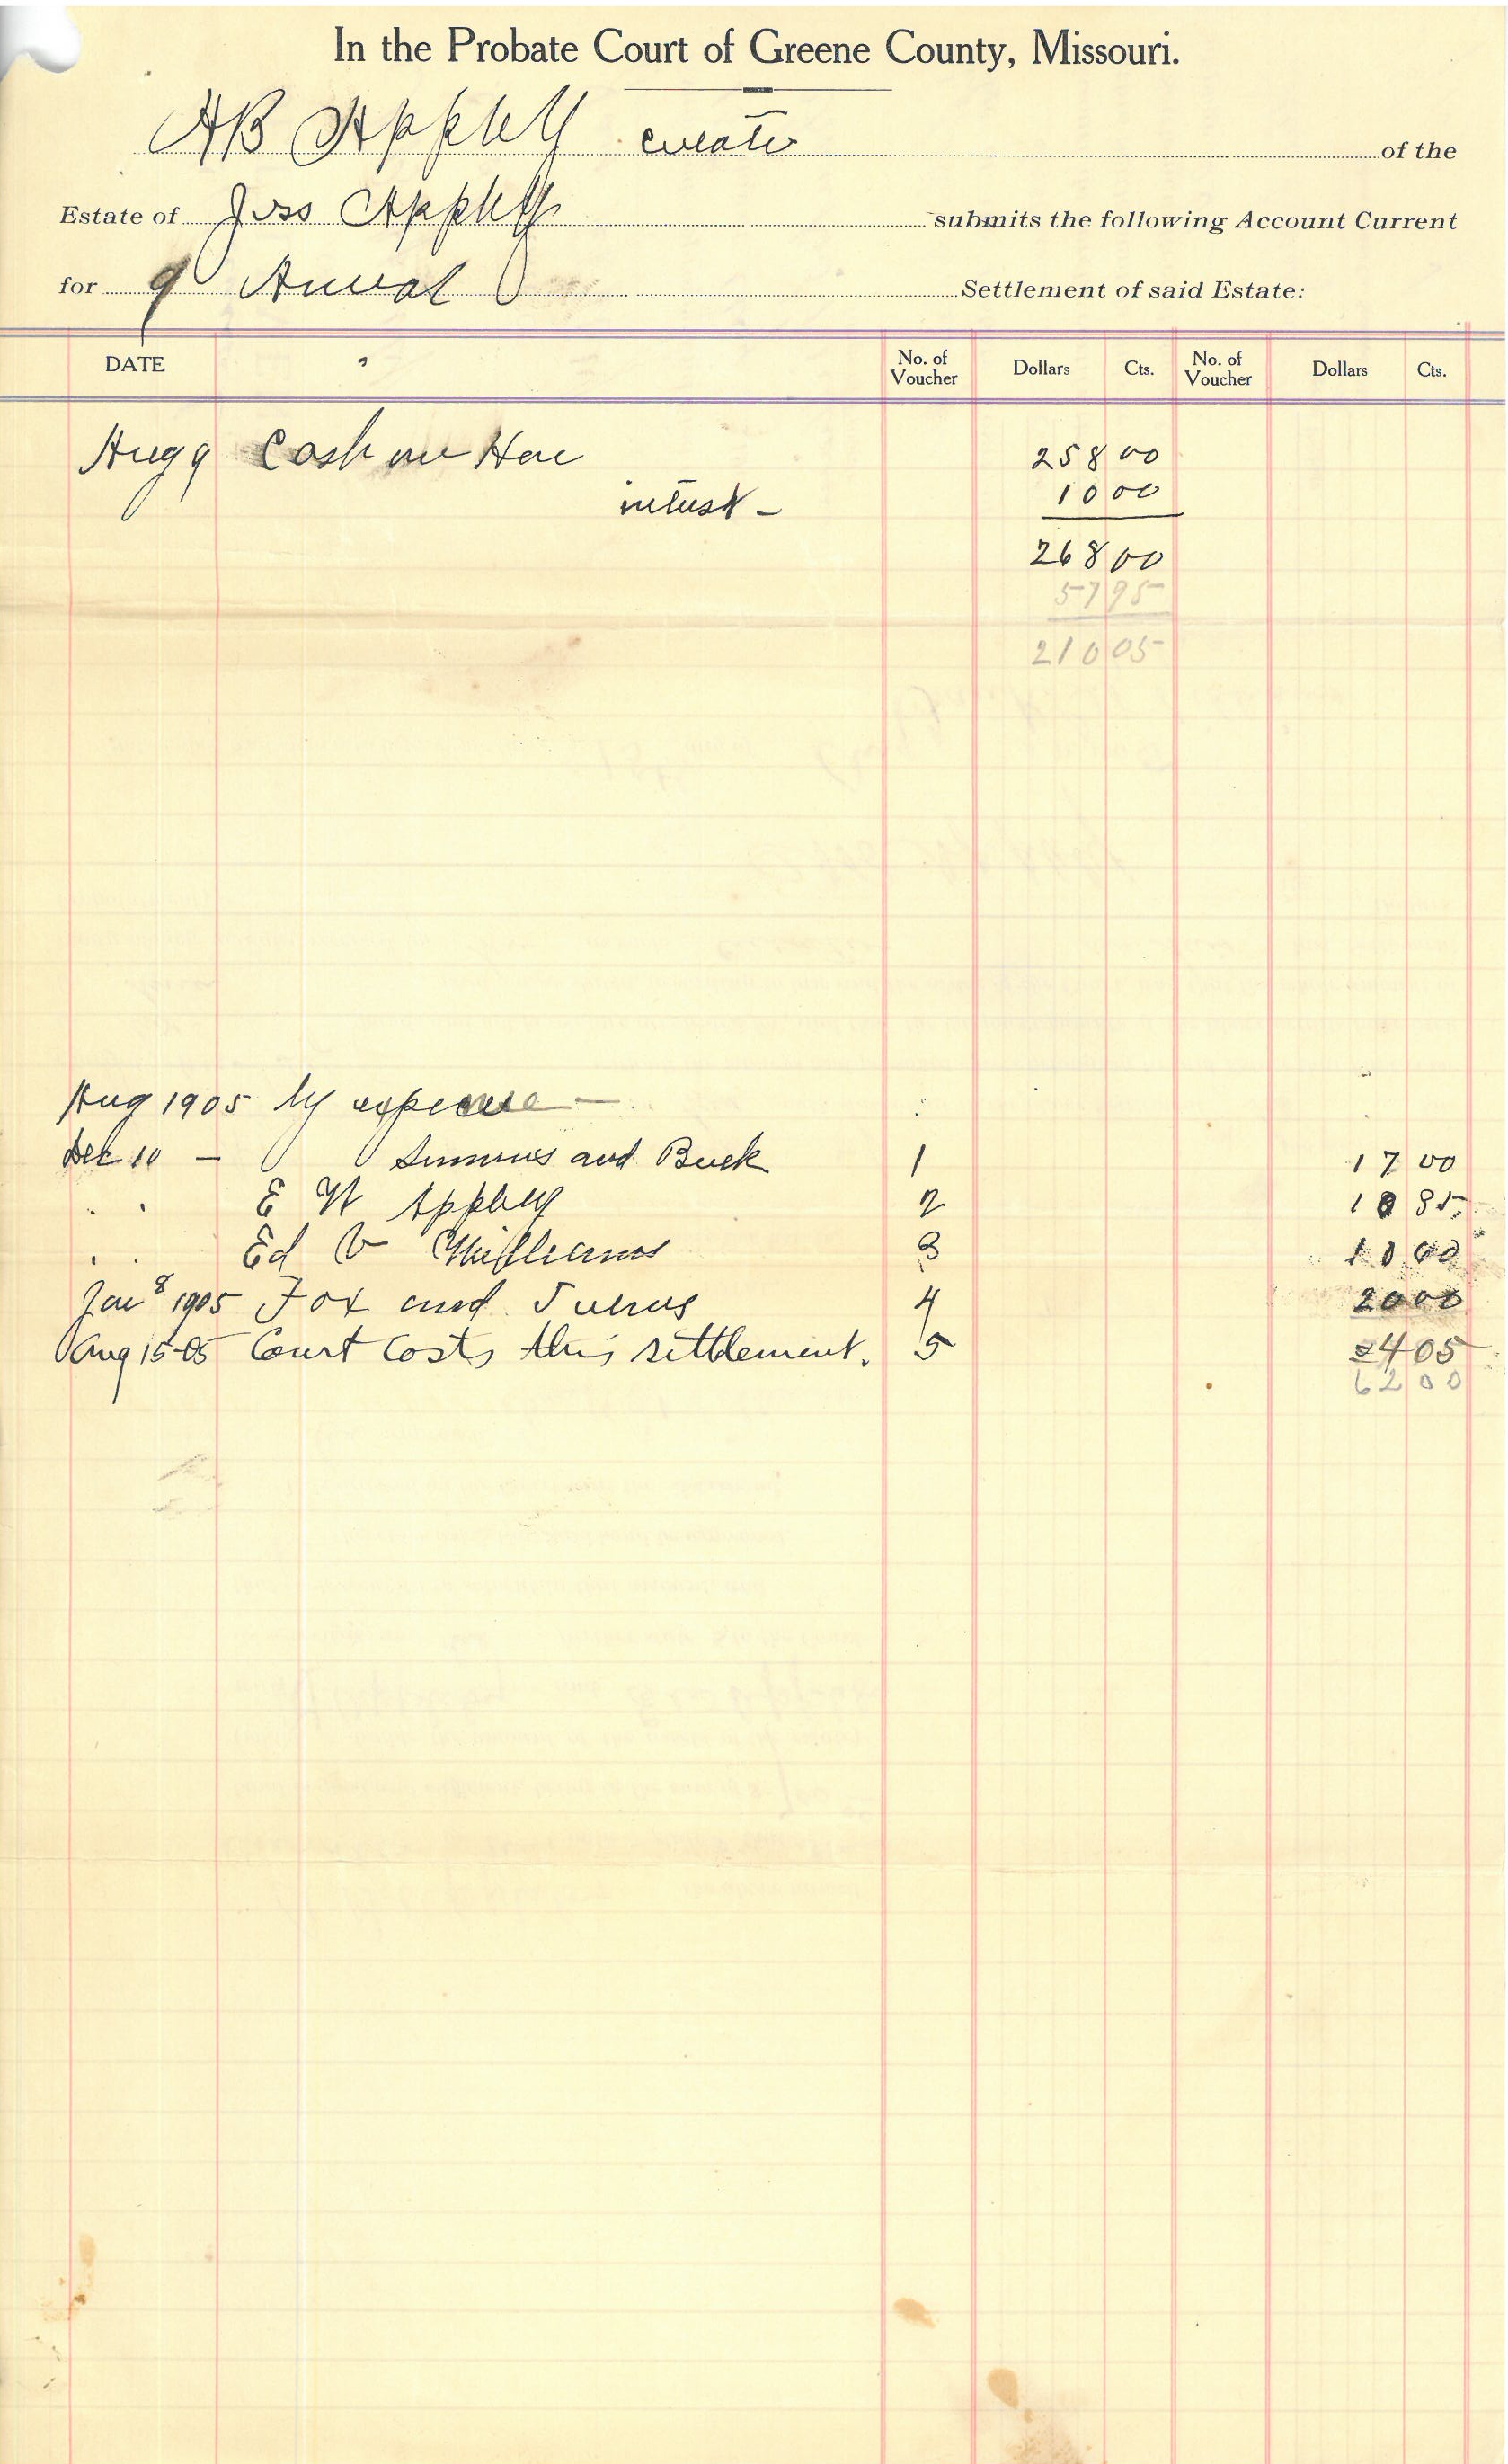 In the Probate Court of Greene County, Missouri.
A B Appleby curator of the
Estate of Joss Appleby submits the following Account Current
for 9 Anual Settlement of said Estate:
DATE No. of Voucher Dollars Cts. No. of Voucher Dollars Cts.
Aug 9 Cash on Han 258 00
intrest - 10 00
268 00
57 95
210 05
Aug 1905 by expense -
Dec 10 - Simmons and Buck 1 17 00
" " E W Appleby 2 10 85
" " Ed V Williams 3 10 00
Jan 8 1905 Fox and 4 20 00
Aug 15-05 Court Costs this settlement. 5 4 05
62 00